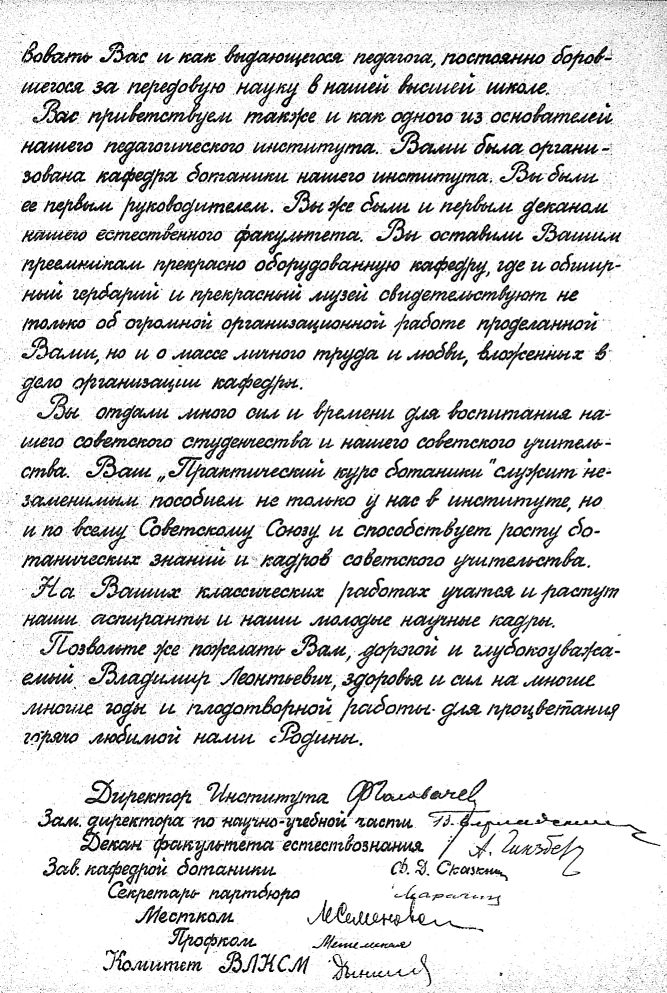 вовать Вас и как выдающегося педагога, постоянно боров-
шегося за передовую науку в нашей высшей школе.
Вас приветствуем также и как одного из основателей
нашего педагогического института. Вами была органи-
зована кафедра ботаники нашего института. Вы были
ее первым руководителем. Вы же были и первым деканом
нашего естественного факультета. Вы оставили Вашим
преемникам прекрасно оборудованную кафедру, где и обшир-
ный гербарий и прекрасный музей свидетельствуют не
только об огромной организационной работе проделанной
Вами, но и о массе личного труда и любви, вложенных в
дело организации кафедры.
Вы отдали много сил и времени для воспитания на-
шего советского студенчества и нашего советского учитель-
ства. Ваш „Практический курс ботаники" служит не-
заменимым пособием не только у нас в институте, но
и по всему Советскому Союзу и способствует росту бо-
танических знаний и кадров советского учительства.
На Ваших классических работах учатся и растут
наши аспиранты и наши молодые научные кадры.
Позвольте же пожелать Вам, дорогой и глубокоуважа-
емый Владимир Леонтьевич, здоровья и сил на многие
многие годы и плодотворной работы для процветания
горячо любимой нами Родины.
Директор Института Ф Головачев
Зам. директора по научно-учебной части
Декан факультета естествознания
Зав. кафедрой ботаники Ф. Д. Сказкин
Секретарь партбюро
Местком
Профком
Комитет ВЛКСМ